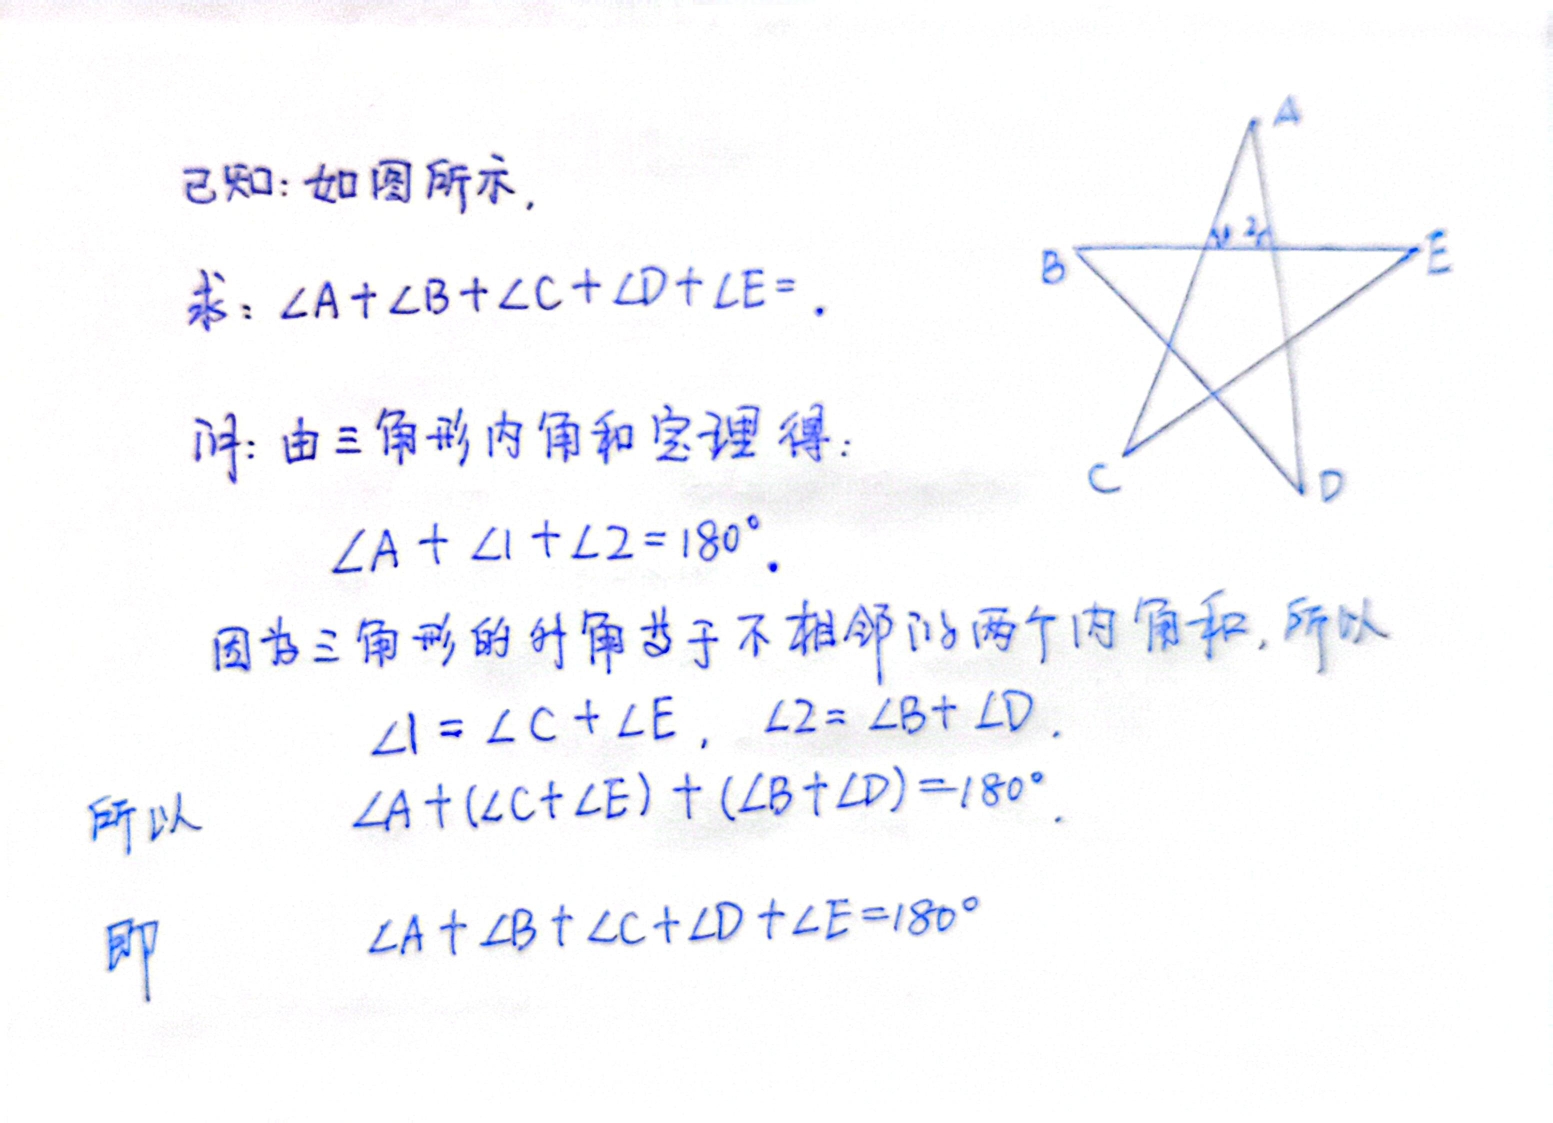 已知:如图所示,
求:∠A+∠B+∠C+∠D+∠E= .
解:由三角形内角和定理得:
∠A+∠1+∠2=180°.
因为三角形的外角等于不相邻的两个内角和,所以
∠1=∠C+∠E, ∠2=∠B+∠D.
所以 ∠A+(∠C+∠E)+(∠B+∠D)=180°.
即 ∠A+∠B+∠C+∠D+∠E=180°
A
1 2
B
E
C
D